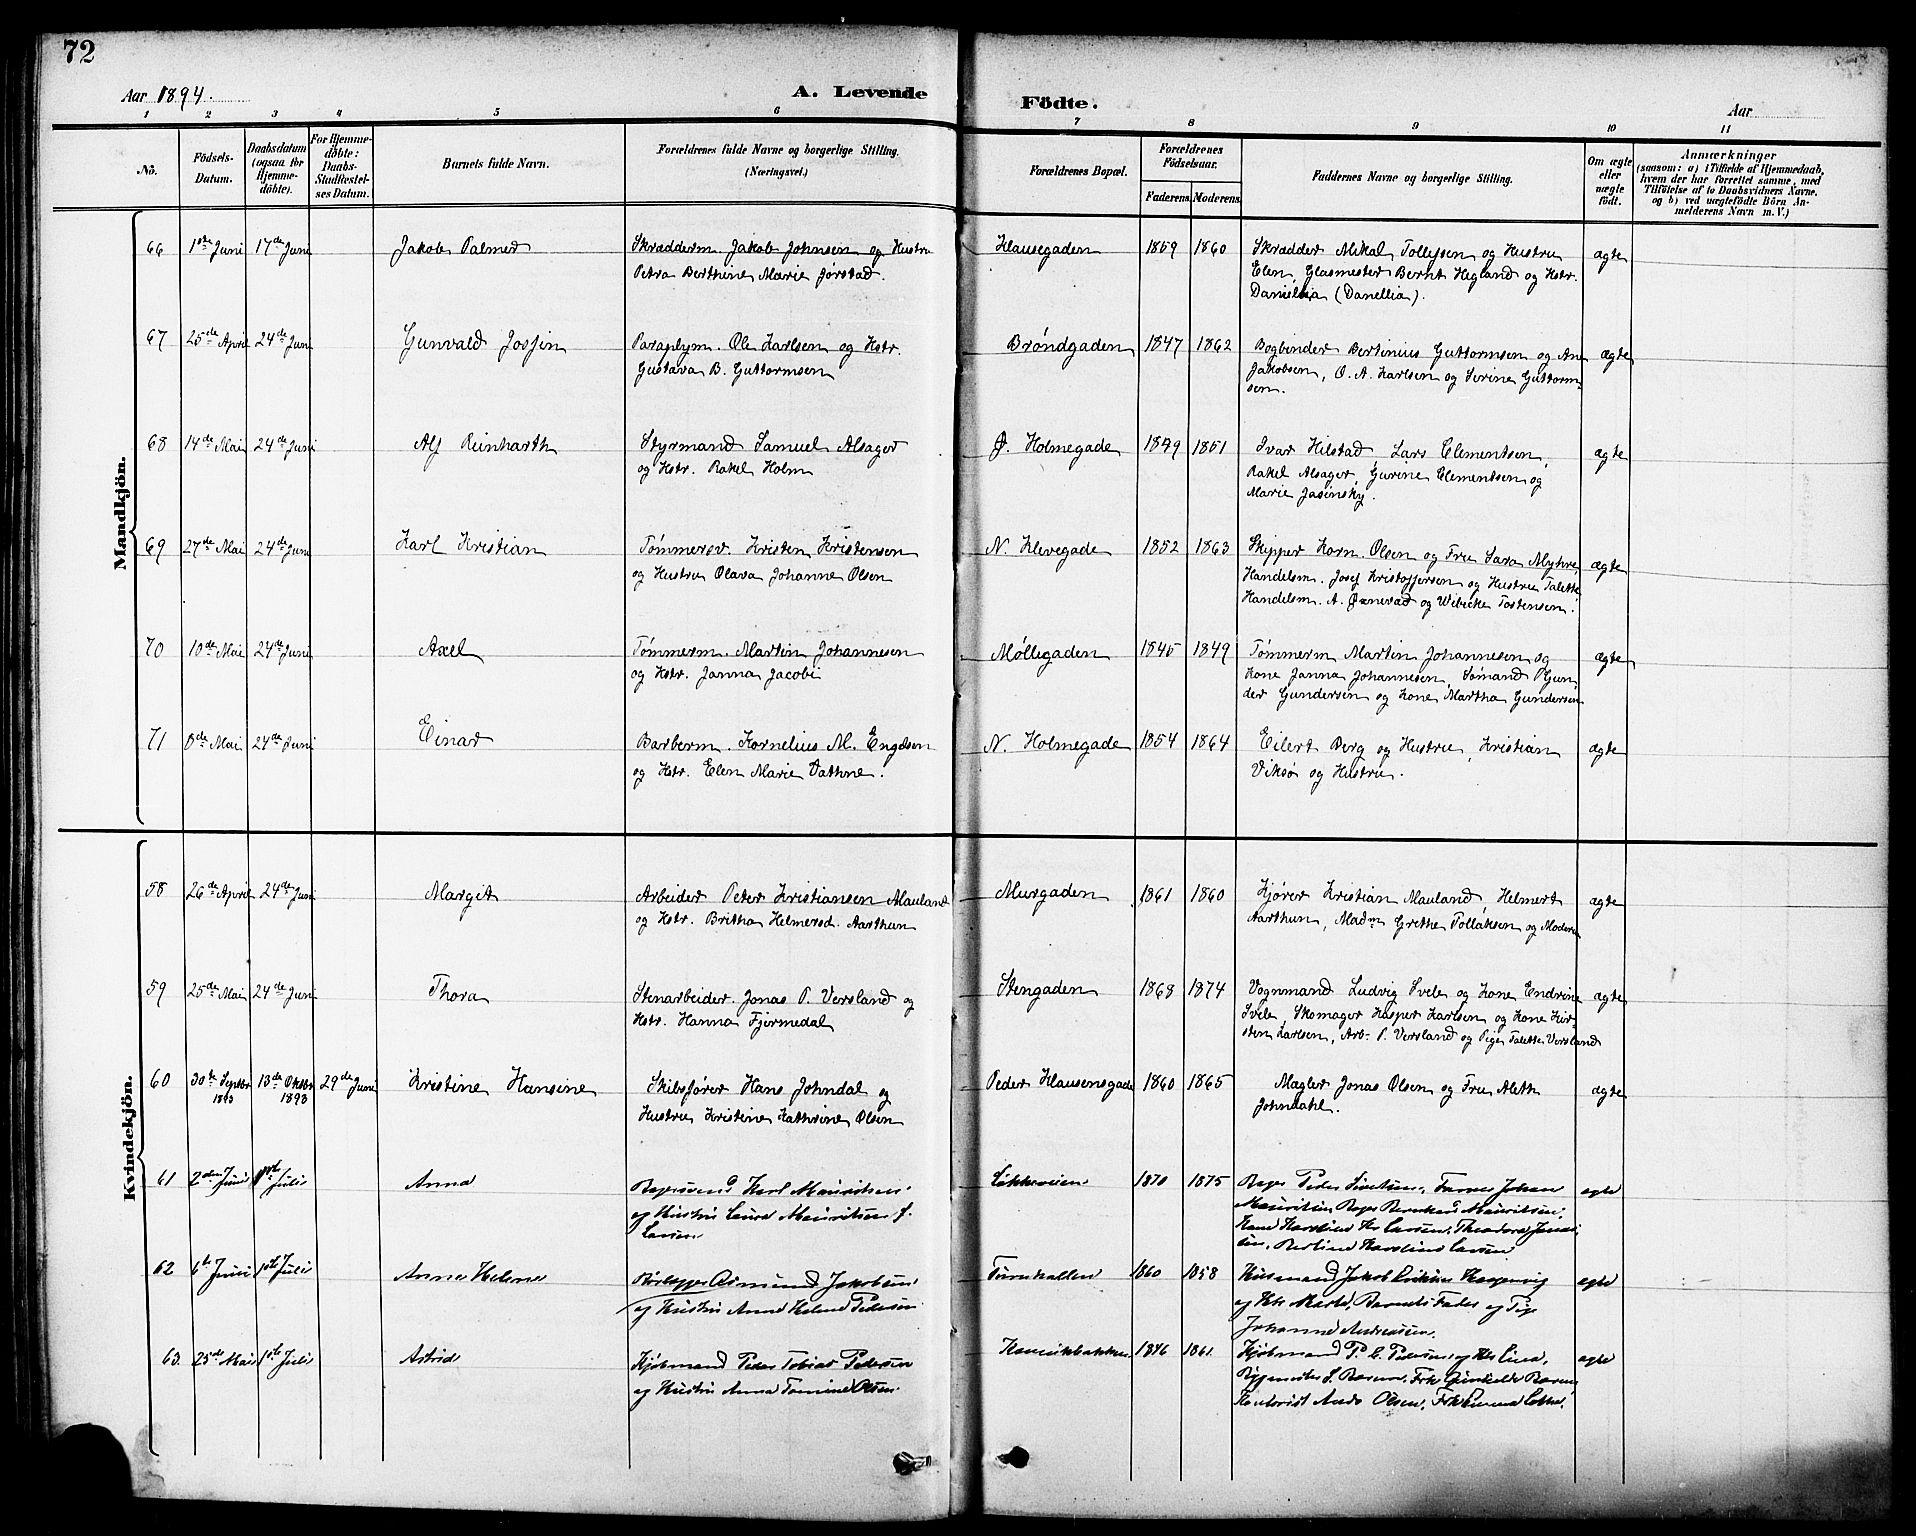 72
Aar 1894.
A. Levende Födte.
Aar
1 2 3 4 5 6 7 8 9 10 11
No. Födsels-Datum. Daabsdatum (ogsaa for Hjemmedöbte). For Hjemmedöbte: Daabs-Stadfæstelses Datum. Barnets fulde Navn. Forældrenes fulde Navne og borgerlige Stilling. (Næringsvei.) Forældrenes Bopæl. Forældrenes Födselsaar. Faderens Moderens Faddernes Navne og borgerlige Stilling. Om ægte eller uægte födt. Anmærkninger (saasom: a) i Tilfælde af Hjemmedaab, hvem der har forrettet samme, med Tilföielse af to Daabsvidners Navne, og b) ved uægtefödte Börn Anmelderens Navn m. V.)
Mandkjön.
66 1ste Juni 17de Juni Jakob Palmer Skrædderm. Jakob Johnsen og Hustru Klausegaden 1859 1860 Skrædder Mikal Tollefsen og Hustru ægte
Petra Berthine Marie Jørstad. Elen, Glasmester Bernt Hegland og Hstr.
Daniellia (Danellia).
67 25de April 24de Juni Gunvald Josfin Paraplym. Ole Karlsen og Hstr. Brøndgaden 1847 1862 Bogbinder Bertinius Guttormsen og An ægte
Gustava B. Guttormsen Jakobsen, O. A. Karlsen og Serine Guttorm-
sen.
68 14de Mai 24de Juni Alf Reinharth Styrmand Samuel Alsager Ø. Holmegade 1849 1851 Ivar Hilstad, Lars Clementsen, ægte
og Hstr. Rakel Holm Rakel Alsager, Gurine Clementsen og
Marie Jasinsky.
69 27de Mai 24de Juni Karl Kristian Tømmersv. Kristen Kristensen N. Klevegade 1852 1863 Skipper Korn. Olsen og Fru Sara Myhre, ægte
og Hustru Olava Johanne Olsen Handelsm. Josef Kristoffersen og Hustru Talette
Handelsm. A. Ørnevad og Wibecke Tostensen.
70 10de Mai 24de Juni Axel Tømmerm. Martin Johannesen Møllegaden 1845 1849 Tømmerm Martin Johannesen og ægte
og Hstr. Janna Jacobi Kone Janna Johannesen, Sømand Gun-
der Gundersen og Kone Martha Gundersen
71 8de Mai 24de Juni Einar Barberm. Kornelius M. Engelsen N. Holmegade 1854 1864 Eilert Berg og Hustru, Kristian ægte
og Hstr. Elen Marie Vathne. Viksø og Hustru.
Kvindekjön.
58 26de April 24de Juni Margit Arbeider Peter Kristiansen Mauland Murgaden 1861 1860 Kjører Kristian Mauland, Helmert ægte
og Hstr. Britha Helmersd. Aarthun Aarthun, Madm Grethe Tollaksen og Moderen
59 25de Mai 24de Juni Thora Stenarbeider. Jonas P. Versland og Stengaden 1868 1874 Vognmand Ludvig Svele og Kone Endrine ægte
Hstr. Hanna Fjermedal Svele, Skomager Kasper Karlsen og Kone Kir-
sten Karlsen, Arb. P. Versland og Pige Talette Versland
60 30te Septbr 1893 13de Oktbr 1893 29de Juni Kristine Hansine Skibsfører Hans Johndal og Peder Klausensgade 1860 1865 Mægler Jonas Olsen og Fru Aleth ægte
Hustru Kristine Kathrine Olsen Johndahl.
61 2den Juni 1ste Juli Anna Bagersvend Karl Mauritsen Løkkeveien 1870 1875 Bager Peder Sivertsen, Farver Johan ægte
og Hustru Laura Mauritsen f. Mauritsen Bager Bernhard Mauritsen,
Larsen Larsen, Theodora
Berline Karoline Larsen
62 6te Juni 1ste Juli Anna Helene Asmund Jakobsen Turnhallen 1860 1858 Husmand Jakob ægte
og Hustru Anna Helene Pedersen og Hstr Marta, Barnets Fader og Pige
Johanne Andreassen.
63. 25de Mai 1ste Juli Astrid Kjøbmand Peder Tobias Pedersen Kannikbakken 1846 1861. Kjøbmand P. C. Pedersen og Hstr Lina, ægte
og Hustru Anna Tomine Olsen. Frk
Kontorist Olsen, Frk